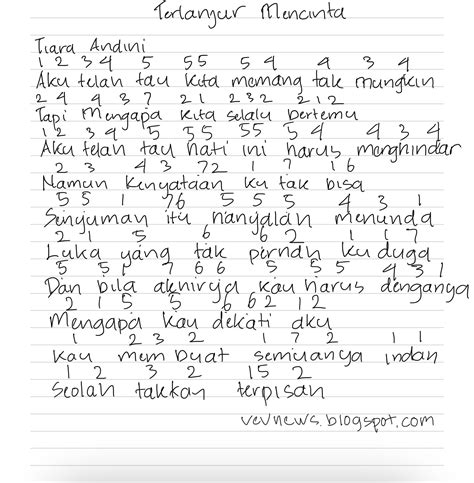 Terlanjur Mencinta
Tiara Andini
1 2 3 4 5 5 5 5 4 4 3 4
Aku telah tau kita memang tak mungkin
2 4 4 3 7 2 1 2 3 2 2 1 2
Tapi Mengapa kita selalu bertemu
1 2 3 4 5 5 5 5 5 5 4 4 3 4
Aku telah tau hati ini harus menghindar
2 3 4 3 7 2 1 7 1 6
Namun kenyataan ku tak bisa
5 5 1 7 6 5 5 5 4 3 1
Senyuman itu hanyalah menunda
2 1 5 6 6 2 1 1 7
Luka yang tak pernah ku duga
5 5 1 7 6 6 5 5 5 4 3 1
Dan bila akhirya kau harus denganya
2 1 5 5 6 6 2 1 2
Mengapa kau dekati aku
1 2 3 2 1 7 2 1 1
kau mem buat semuanya indah
1 2 3 2 1 5 2
Seolah takkan terpisah
vevnews.blogspot.com